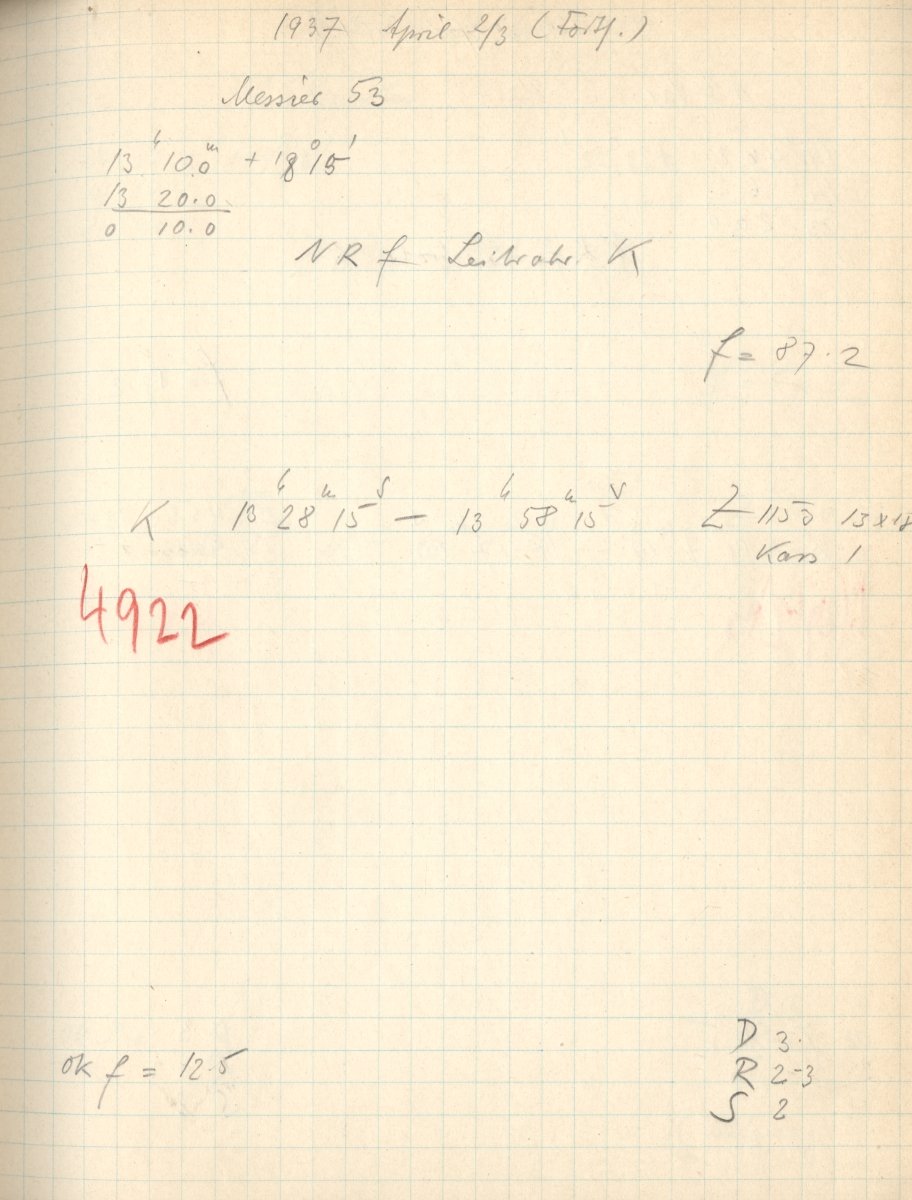 1937 April 2/3 (Forts.)
Messier 53
13ʰ 10.0ᵐ + 18° 15'
13 20.0
0 10.0
NRf Leitrohr K
f = 87.2
K 13ʰ 28ᵐ 15ˢ — 13ʰ 58ᵐ 15ˢ Z 1155 13x18
Kass 1
4922
ok f = 12.5
D 3.
R 2-3
S 2